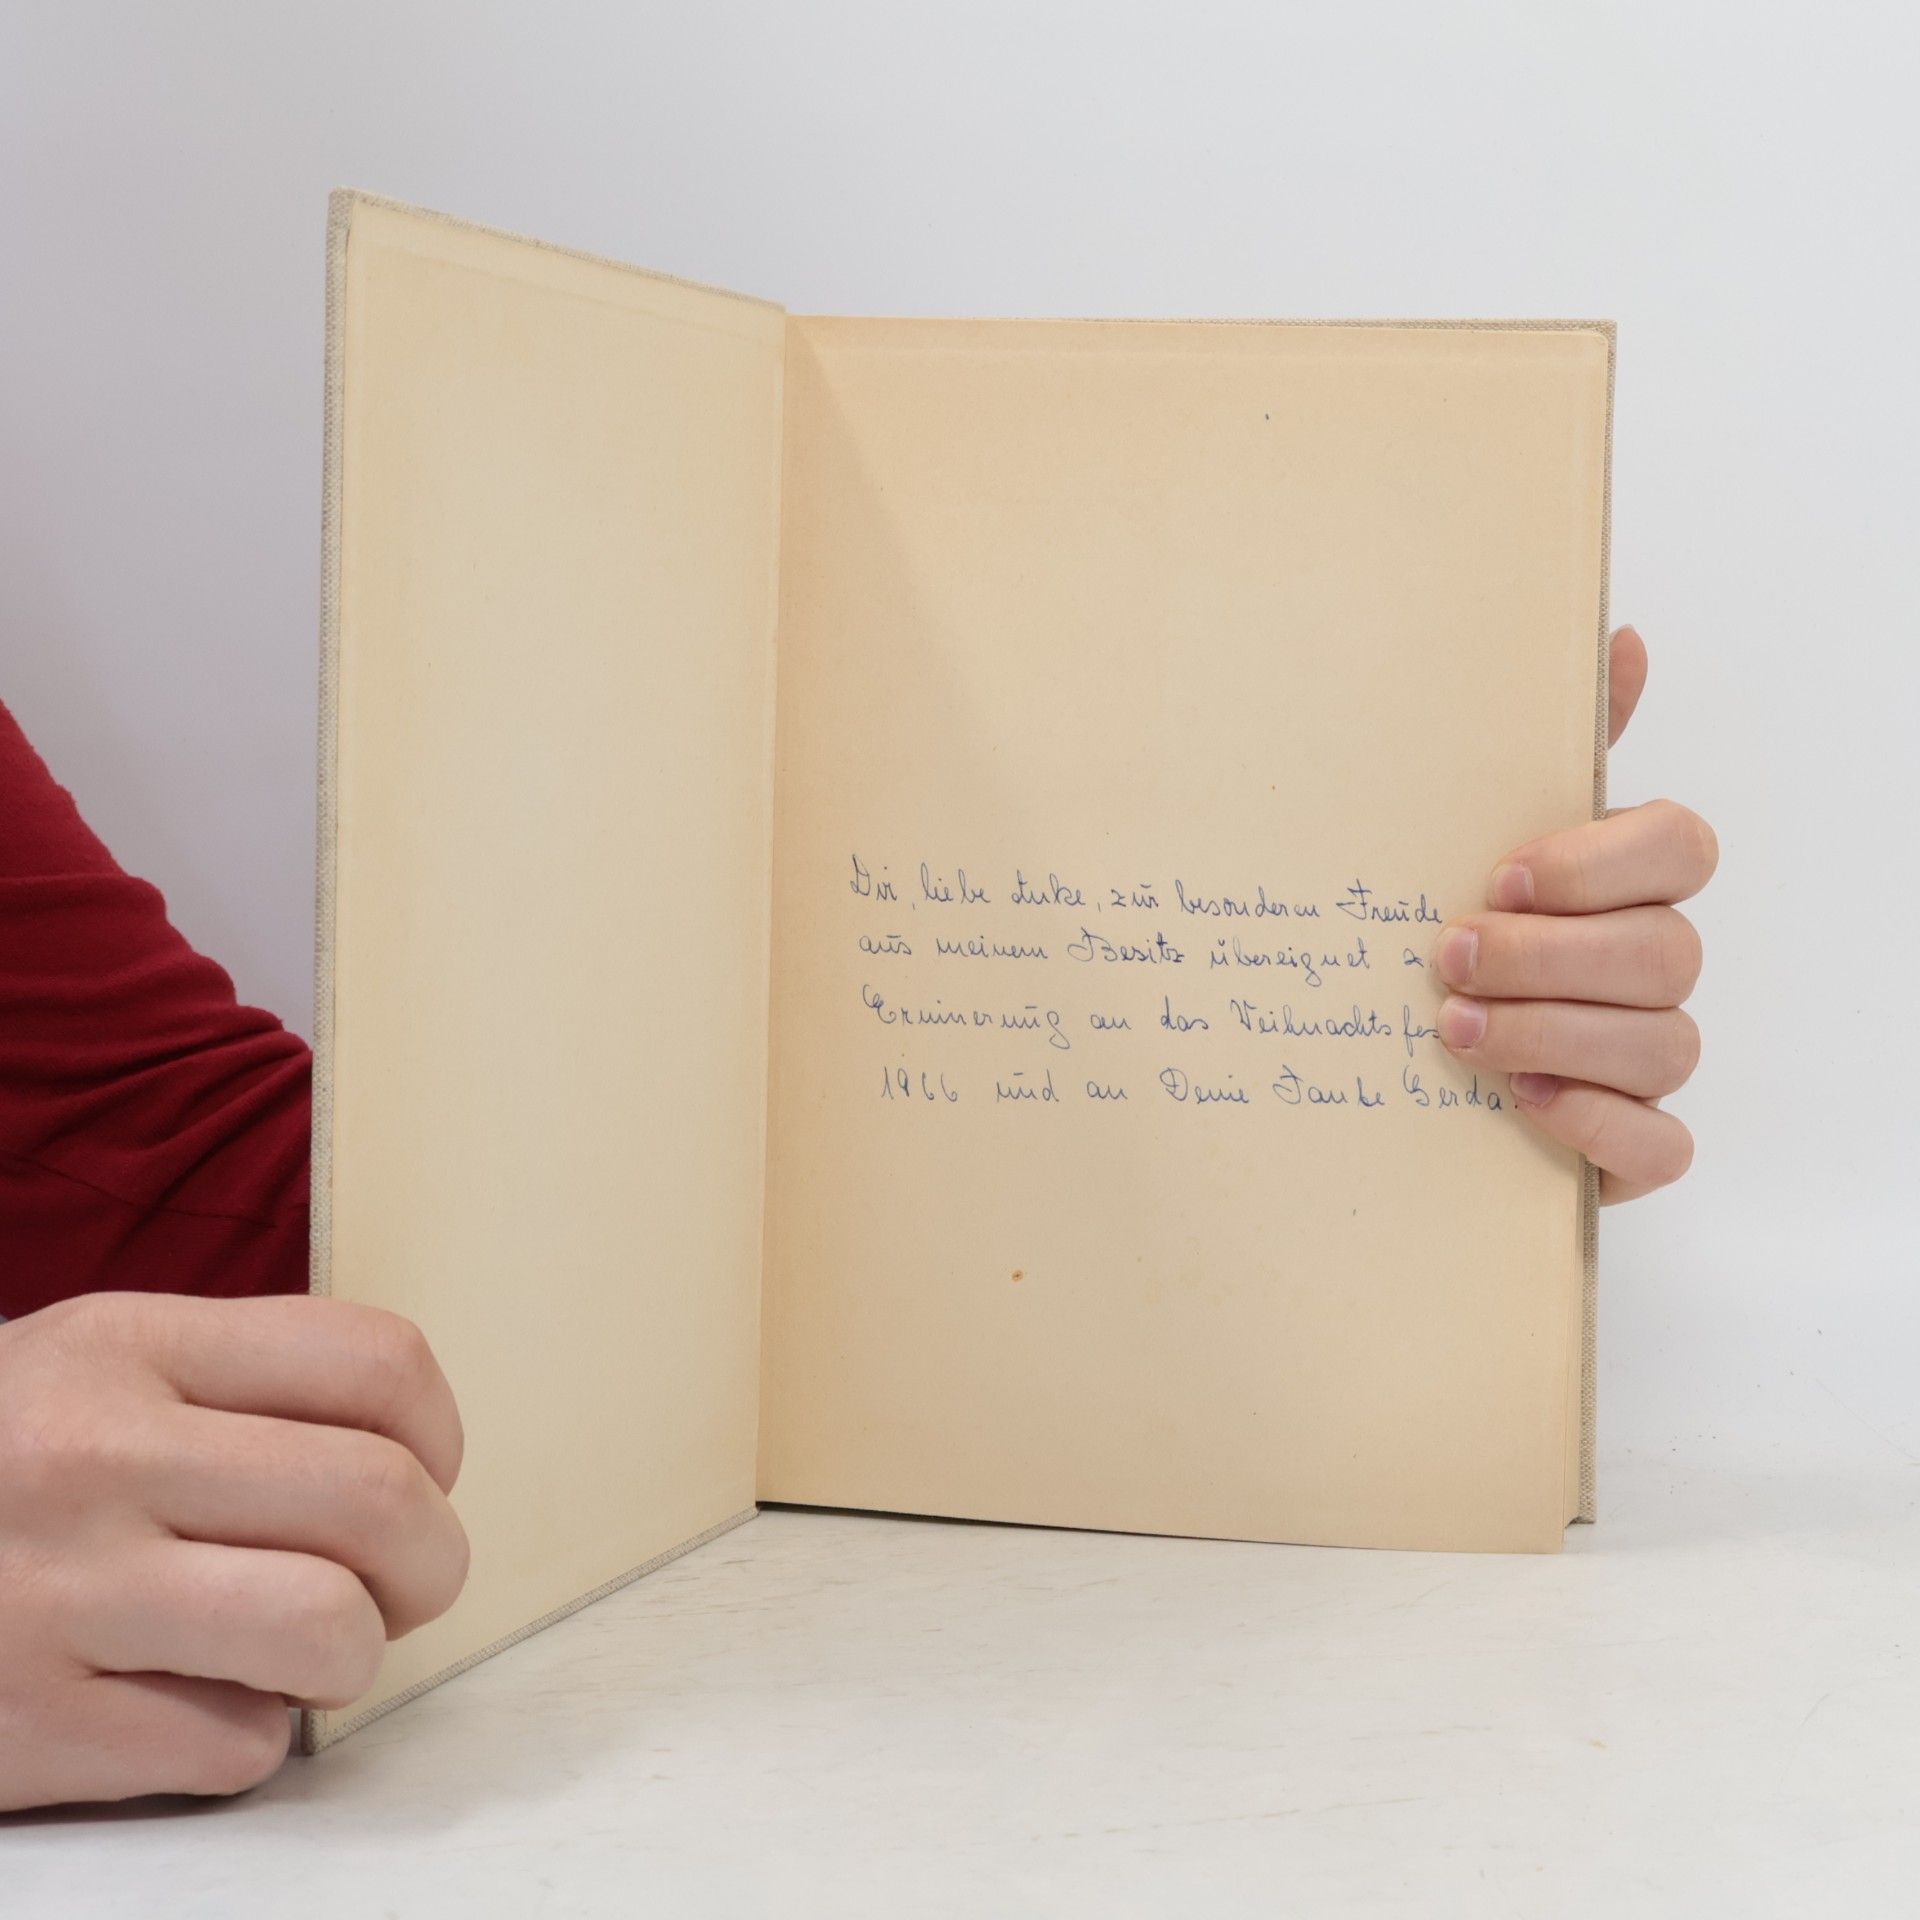 Dir, liebe Anke, zur besonderen Freude
aus meinem Besitz übereignet z.
Erinnerung an das Weihnachtsfes
1966 und an Deine Tante Gerda.